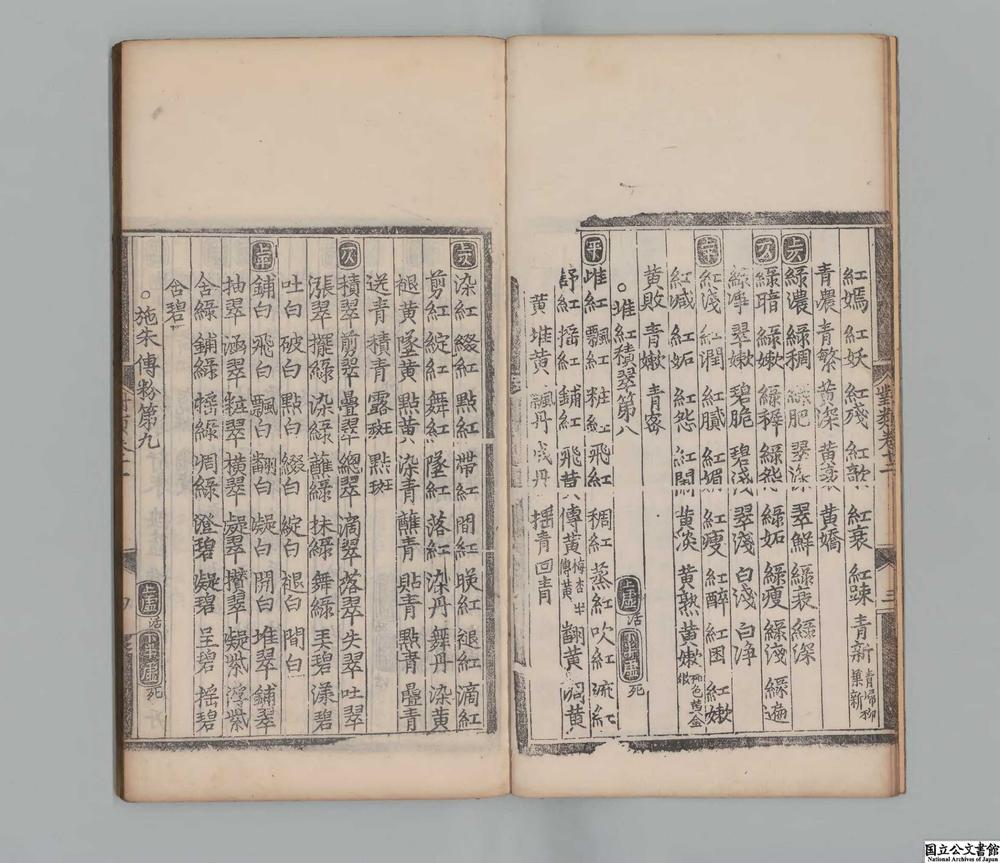 紅嫣 紅妖 紅殘 紅歌 紅衰 紅踈 青新 青歸柳葉新
青農 青繁 黃深 黃衰 黃嬌
上去 綠濃 綠稠 綠肥 翠深 翠鮮 綠衰 綠深
綠暗 綠嫩 綠稺 綠怨 綠妬 綠瘦 綠淺 綠遍
綠淨 翠嫩 碧脆 碧淺 翠淺 白淺 白淨
紅淺 紅潤 紅膩 紅媚 紅瘦 紅醉 紅困 紅嫩
紅减 紅妬 紅怨 紅閙 黃淡 黃熟 黃嫩 色黃金嫩
黃敗 青嫩 青密
○堆紅積翠第八 上虛活 下半虛死
平 堆紅 飄紅 粧紅 飛紅 稠紅 蒸紅 吹紅 流紅
舒紅 搖紅 鋪紅 飛黃 傳黃 梅杏半傳黃 翻黃 凋黃
黃 堆黃 楓丹 成丹 搖青 回青
對類卷十二
三
上去 染紅 綴紅 點紅 帶紅 間紅 暎紅 褪紅 滴紅
剪紅 綻紅 舞紅 墜紅 落紅 染丹 舞丹 染黃
褪黃 墜黃 點黃 染青 蘸青 貼青 點青 疊青
送青 積青 露斑 點斑
積翠 剪翠 疊翠 總翠 滴翠 落翠 失翠 吐翠
漲翠 擺綠 染綠 蘸綠 抹綠 舞綠 弄碧 漾碧
吐白 破白 點白 綴白 綻白 褪白 間白
上平 鋪白 飛白 飄白 翻白 凝白 開白 堆翠 鋪翠
抽翠 涵翠 粧翠 橫翠 凝翠 攢翠 凝紫 浮紫
含綠 鋪綠 搖綠 凋綠 澄碧 凝碧 呈碧 搖碧
含碧
○施朱傅粉第九 上虛活 下半虛死
国立公文書館
National Archives of Japan